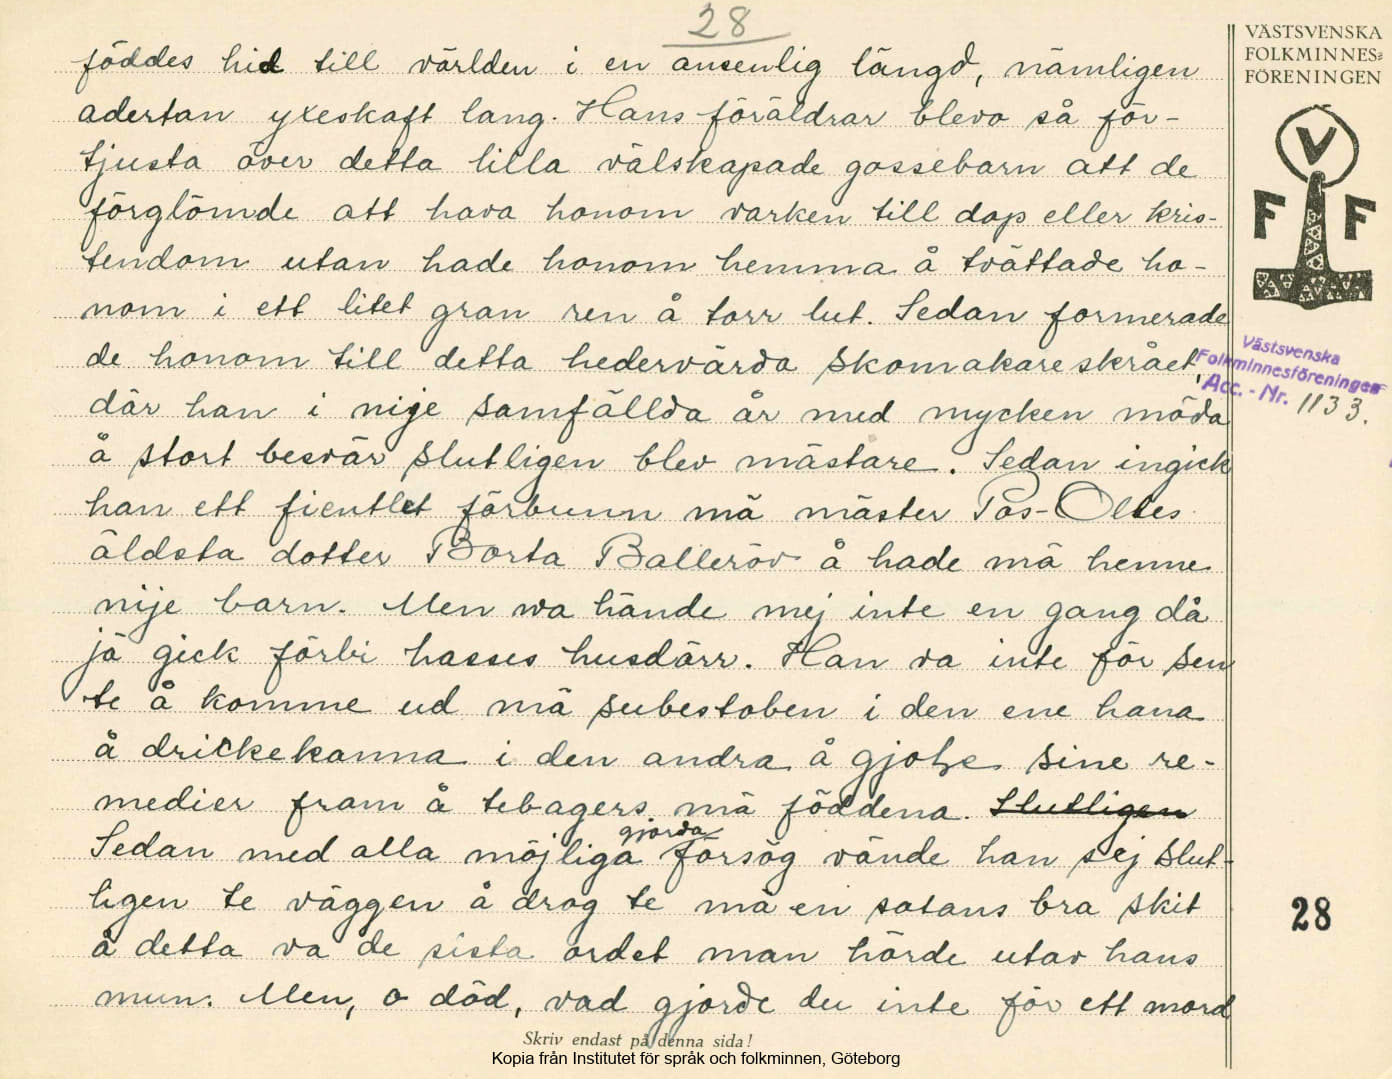 28
VÄSTSVENSKA
FOLKMINNES=
FÖRENINGEN
V
F F
föddes hid till världen i en ansenlig längd, nämligen
adertan yxeskaft lang. Hans föräldrar blevo så för-
tjusta över detta lilla välskapade gossebarn att de
förglömde att hava honom varken till dop eller kris-
tendom utan hade honom hemma å tvättade ho-
nom i ett litet gran ren å torr lut. Sedan formerade
de honom till detta hedervärda skomakareskrået,
där han i nije samfällda år med mycken möda
å stort besvär slutligen blev mästare. Sedan ingick
han ett fientlet förbunn mä mäster Pås-Olles
äldsta dotter Borta Balleröv å hade mä henne
nije barn. Men va hände mej inte en gang då
jä gick förbi hasses husdärr. Han va inte för sen
te å komme ud mä subestoben i den ene hana
å drickekanna i den andra å gjohe sine re-
medier fram å tebagers mä föddena. Slutligen
Sedan med alla möjliga gjorda försög vände han sej slut-
ligen te väggen å drog te mä en satans bra skit
å detta va de sista ordet man hörde utav hans
mun. Men, o död, vad gjorde du inte för ett mord
Västsvenska
Folkminnesföreningen
Acc. - Nr. 1133.
28
Skriv endast på denna sida!
Kopia från Institutet för språk och folkminnen, Göteborg